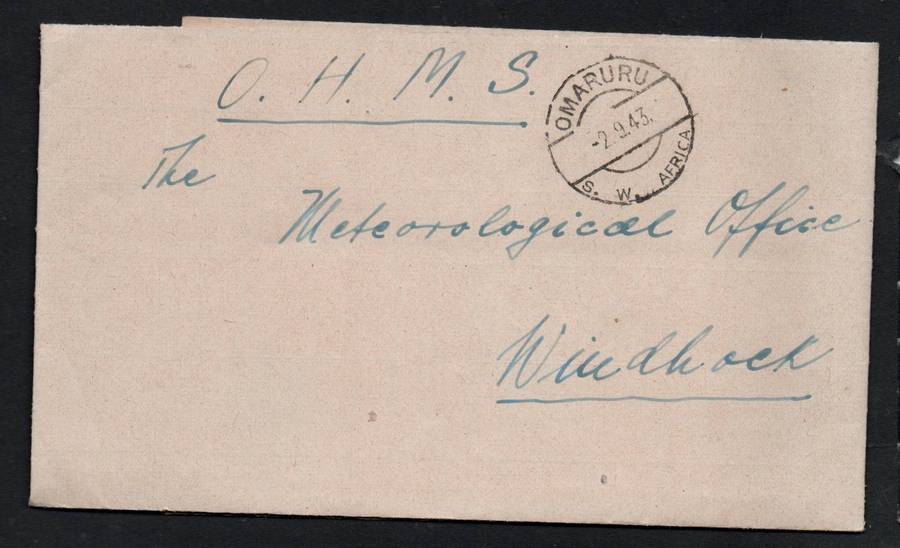 O. H. M. S.
OMARURU
-2.9.43.
S. W. AFRICA
The
Meteorological Office
Windhoek